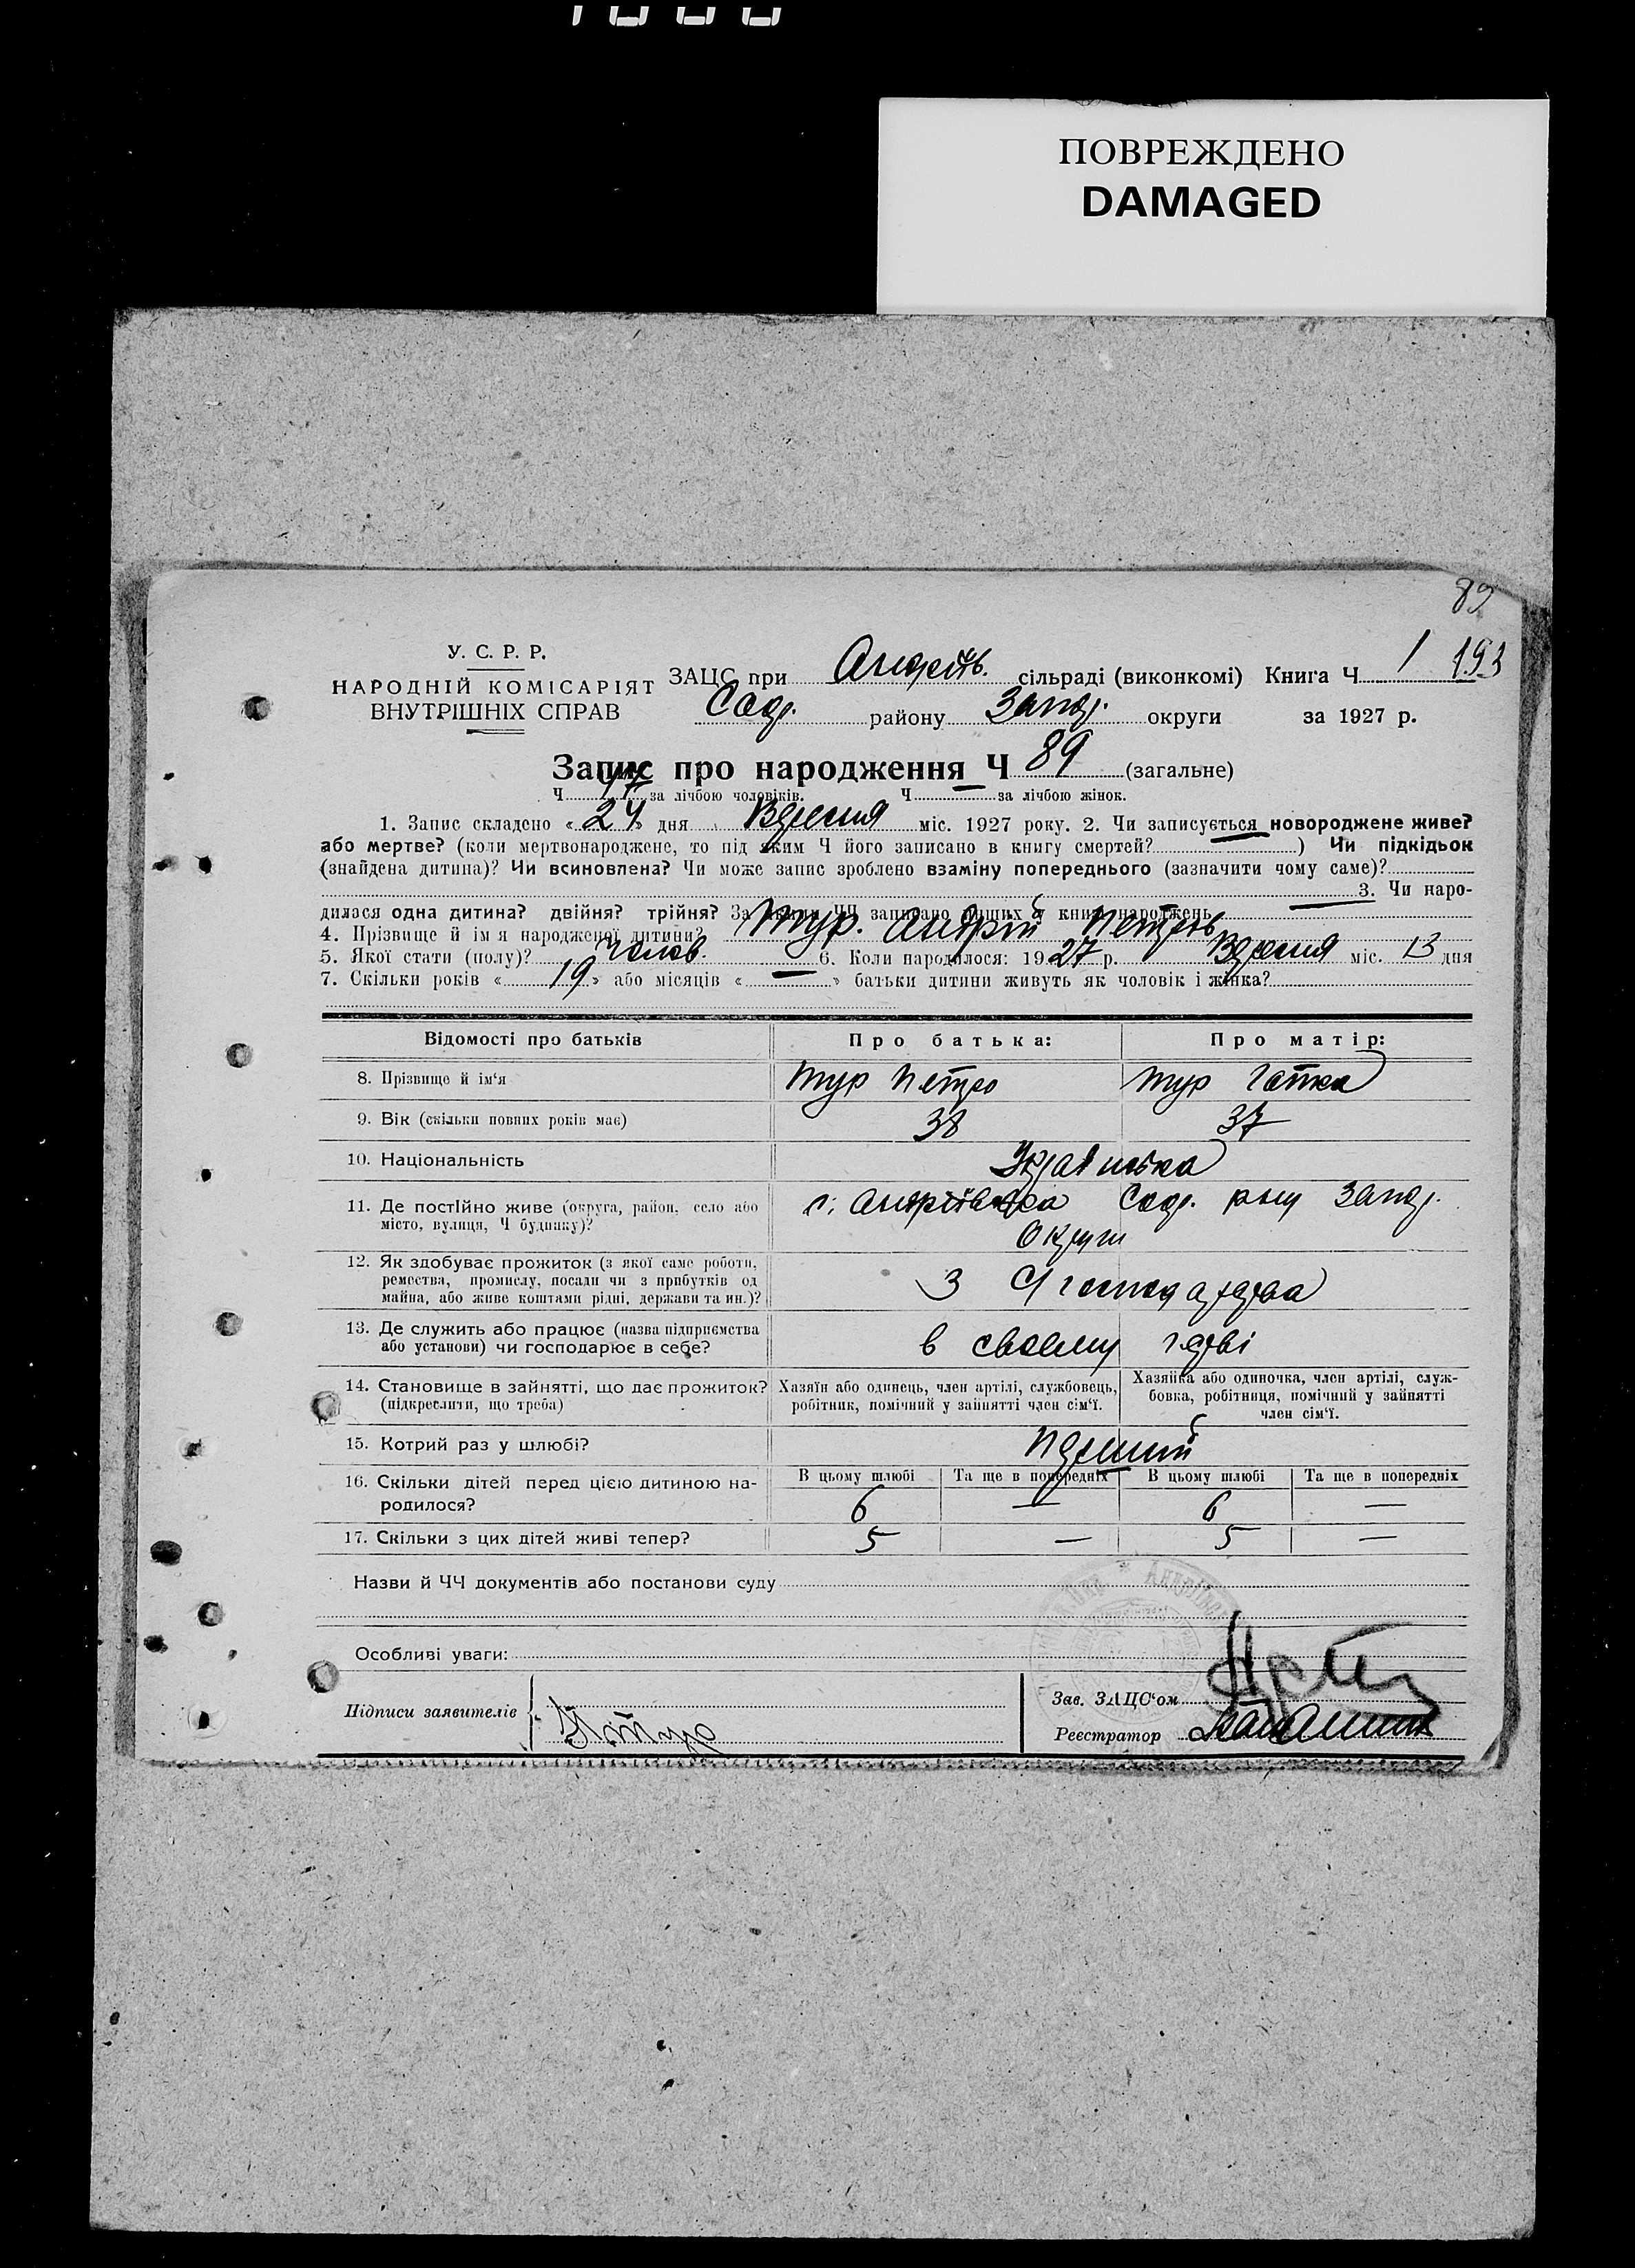 ПОВРЕЖДЕНО
DAMAGED
89
У. С. Р. Р.
НАРОДНІЙ КОМІСАРІЯТ
ВНУТРІШНІХ СПРАВ
ЗАЦС при Андріїв. сільраді (виконкомі) Книга Ч 1 193
району округи за 1927 р.
Запис про народження Ч 89 (загальне)
Ч 47 за лічбою чоловіків. Ч — за лічбою жінок.
1. Запис складено « 24 » дня Вересня міс. 1927 року. 2. Чи записується новороджене живе?
або мертве? (коли мертвонароджене, то під яким Ч його записано в книгу смертей? ) Чи підкідьок
(знайдена дитина)? Чи всиновлена? Чи може запис зроблено взаміну попереднього (зазначити чому саме)?
3. Чи наро-
дилася одна дитина? двійня? трійня? За якими ЧЧ записано инших у книзі народжень
4. Прізвище й ім я народженої дитини? Тур. Андрій Петров
5. Якої стати (полу)? Чолов. 6. Коли народилося: 1927 р. Вересня міс. 13 дня
7. Скільки років « 19 » або місяців « — » батьки дитини живуть як чоловік і жінка?
Відомості про батьків Про батька: Про матір:
8. Прізвище й ім‘я Тур Петро Тур Гапка
9. Вік (скільки повних років має) 38 37
10. Національність Українська
11. Де постійно живе (округа, район, село або
місто, вулиця, Ч будинку)? с. Андріївка
Округи
12. Як здобуває прожиток (з якої саме роботи,
ремества, промислу, посади чи з прибутків од
майна, або живе коштами рідні, держави та ин.)? З
13. Де служить або працює (назва підприємства
або установи) чи господарює в себе? в своему
14. Становище в зайнятті, що дає прожиток?
(підкреслити, що треба)
Хазяїн або одинець, член артілі, службовець,
робітник, помічний у зайнятті член сім‘ї.
Хазяйка або одиночка, член артілі, служ-
бовка, робітниця, помічний у зайнятті
член сім‘ї.
15. Котрий раз у шлюбі? Перший
16. Скільки дітей перед цією дитиною на-
родилося?
В цьому шлюбі Та ще в попередніх В цьому шлюбі Та ще в попередніх
6 — 6 —
17. Скільки з цих дітей живі тепер? 5 — 5 —
Назви й ЧЧ документів або постанови суду
Особливі уваги:
Підписи заявителів
Зав. ЗАЦС‘ом
Реєстратор